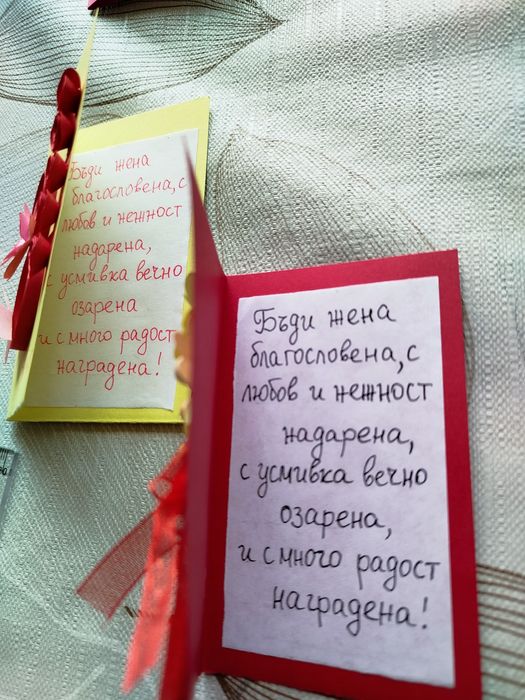 Бъди жена
благословена, с
любов и нежност
надарена,
с усмивка вечно
озарена
и с много радост
наградена!
Бъди жена
благословена, с
любов и нежност
надарена,
с усмивка вечно
озарена,
и с много радост
наградена!